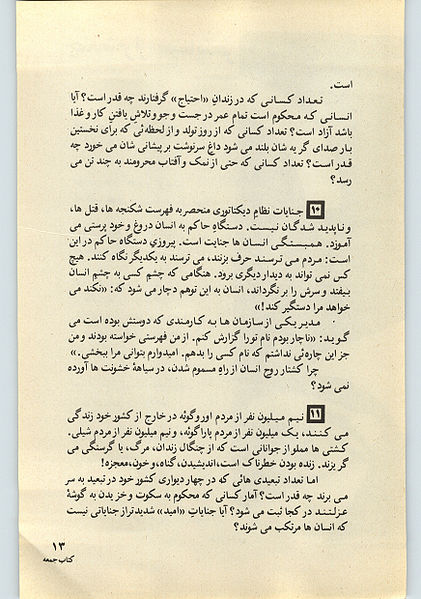 است.
تعداد کسانی که در زندان «احتیاج» گرفتارند چه قدر است؟ آیا
انسانی که محکوم است تمام عمر در جست و جو و تلاشِ یافتن کار و غذا
باشد آزاد است؟ تعداد کسانی که از روز تولد و از لحظه‌ئی که برای نخستین
بار صدای گریه شان بلند می شود داغِ سرنوشت بر پیشانی شان می خورد چه
قدر است؟ تعداد کسانی که حتی از نمک و آفتاب محرومند به چند تن می
رسد؟
۱۰ جنایات نظامِ دیکتاتوری منحصر به فهرست شکنجه ها، قتل ها،
و ناپدید شدگان نیست. دستگاهِ حاکم به انسان دروغ و خود پرستی می
آموزد. همبستگی انسان ها جنایت است. پیروزیِ دستگاه حاکم در این
است: مردم می ترسند حرف بزنند، می ترسند به یکدیگر نگاه کنند. هیچ
کس نمی تواند به دیدار دیگری برود. هنگامی که چشمِ کسی به چشمِ انسان
بیفتد و سرش را بر نگرداند، انسان به این توهم دچار می شود که: «نکند می
خواهد مرا دستگیر کند!»
مدیر یکی از سازمان ها به کارمندی که دوستش بوده است می
گوید: «ناچار بودم نام تو را گزارش کنم. از من فهرستی خواسته بودند و من
جز این چاره‌ئی نداشتم که نام کسی را بدهم. امیدوارم بتوانی مرا ببخشی.»
چرا کشتار روحِ انسان از راهِ مسموم شدن، در سیاههٔ خشونت ها آورده
نمی شود؟
۱۱ نیم میلیون نفر از مردم اوروگوئه در خارج از کشور خود زندگی
می کنند، یک میلیون نفر از مردم پاراگوئه، و نیم میلیون نفر از مردم شیلی.
کشتی ها مملو از جوانانی است که از چنگال زندان، مرگ، یا گرسنگی می
گریزند. زنده بودن خطرناک است، اندیشیدن، گناه، و خون، معجزه!
اما تعداد تبعیدی هائی که در چهار دیواری کشور خود در تبعید به سر
می برند چه قدر است؟ آمار کسانی که محکوم به سکوت و خزیدن به گوشهٔ
عزلتند در کجا ثبت می شود؟ آیا جنایاتِ «امید» شدیدتر از جنایاتی نیست
که انسان ها مرتکب می شوند؟
۱۳
کتاب جمعه